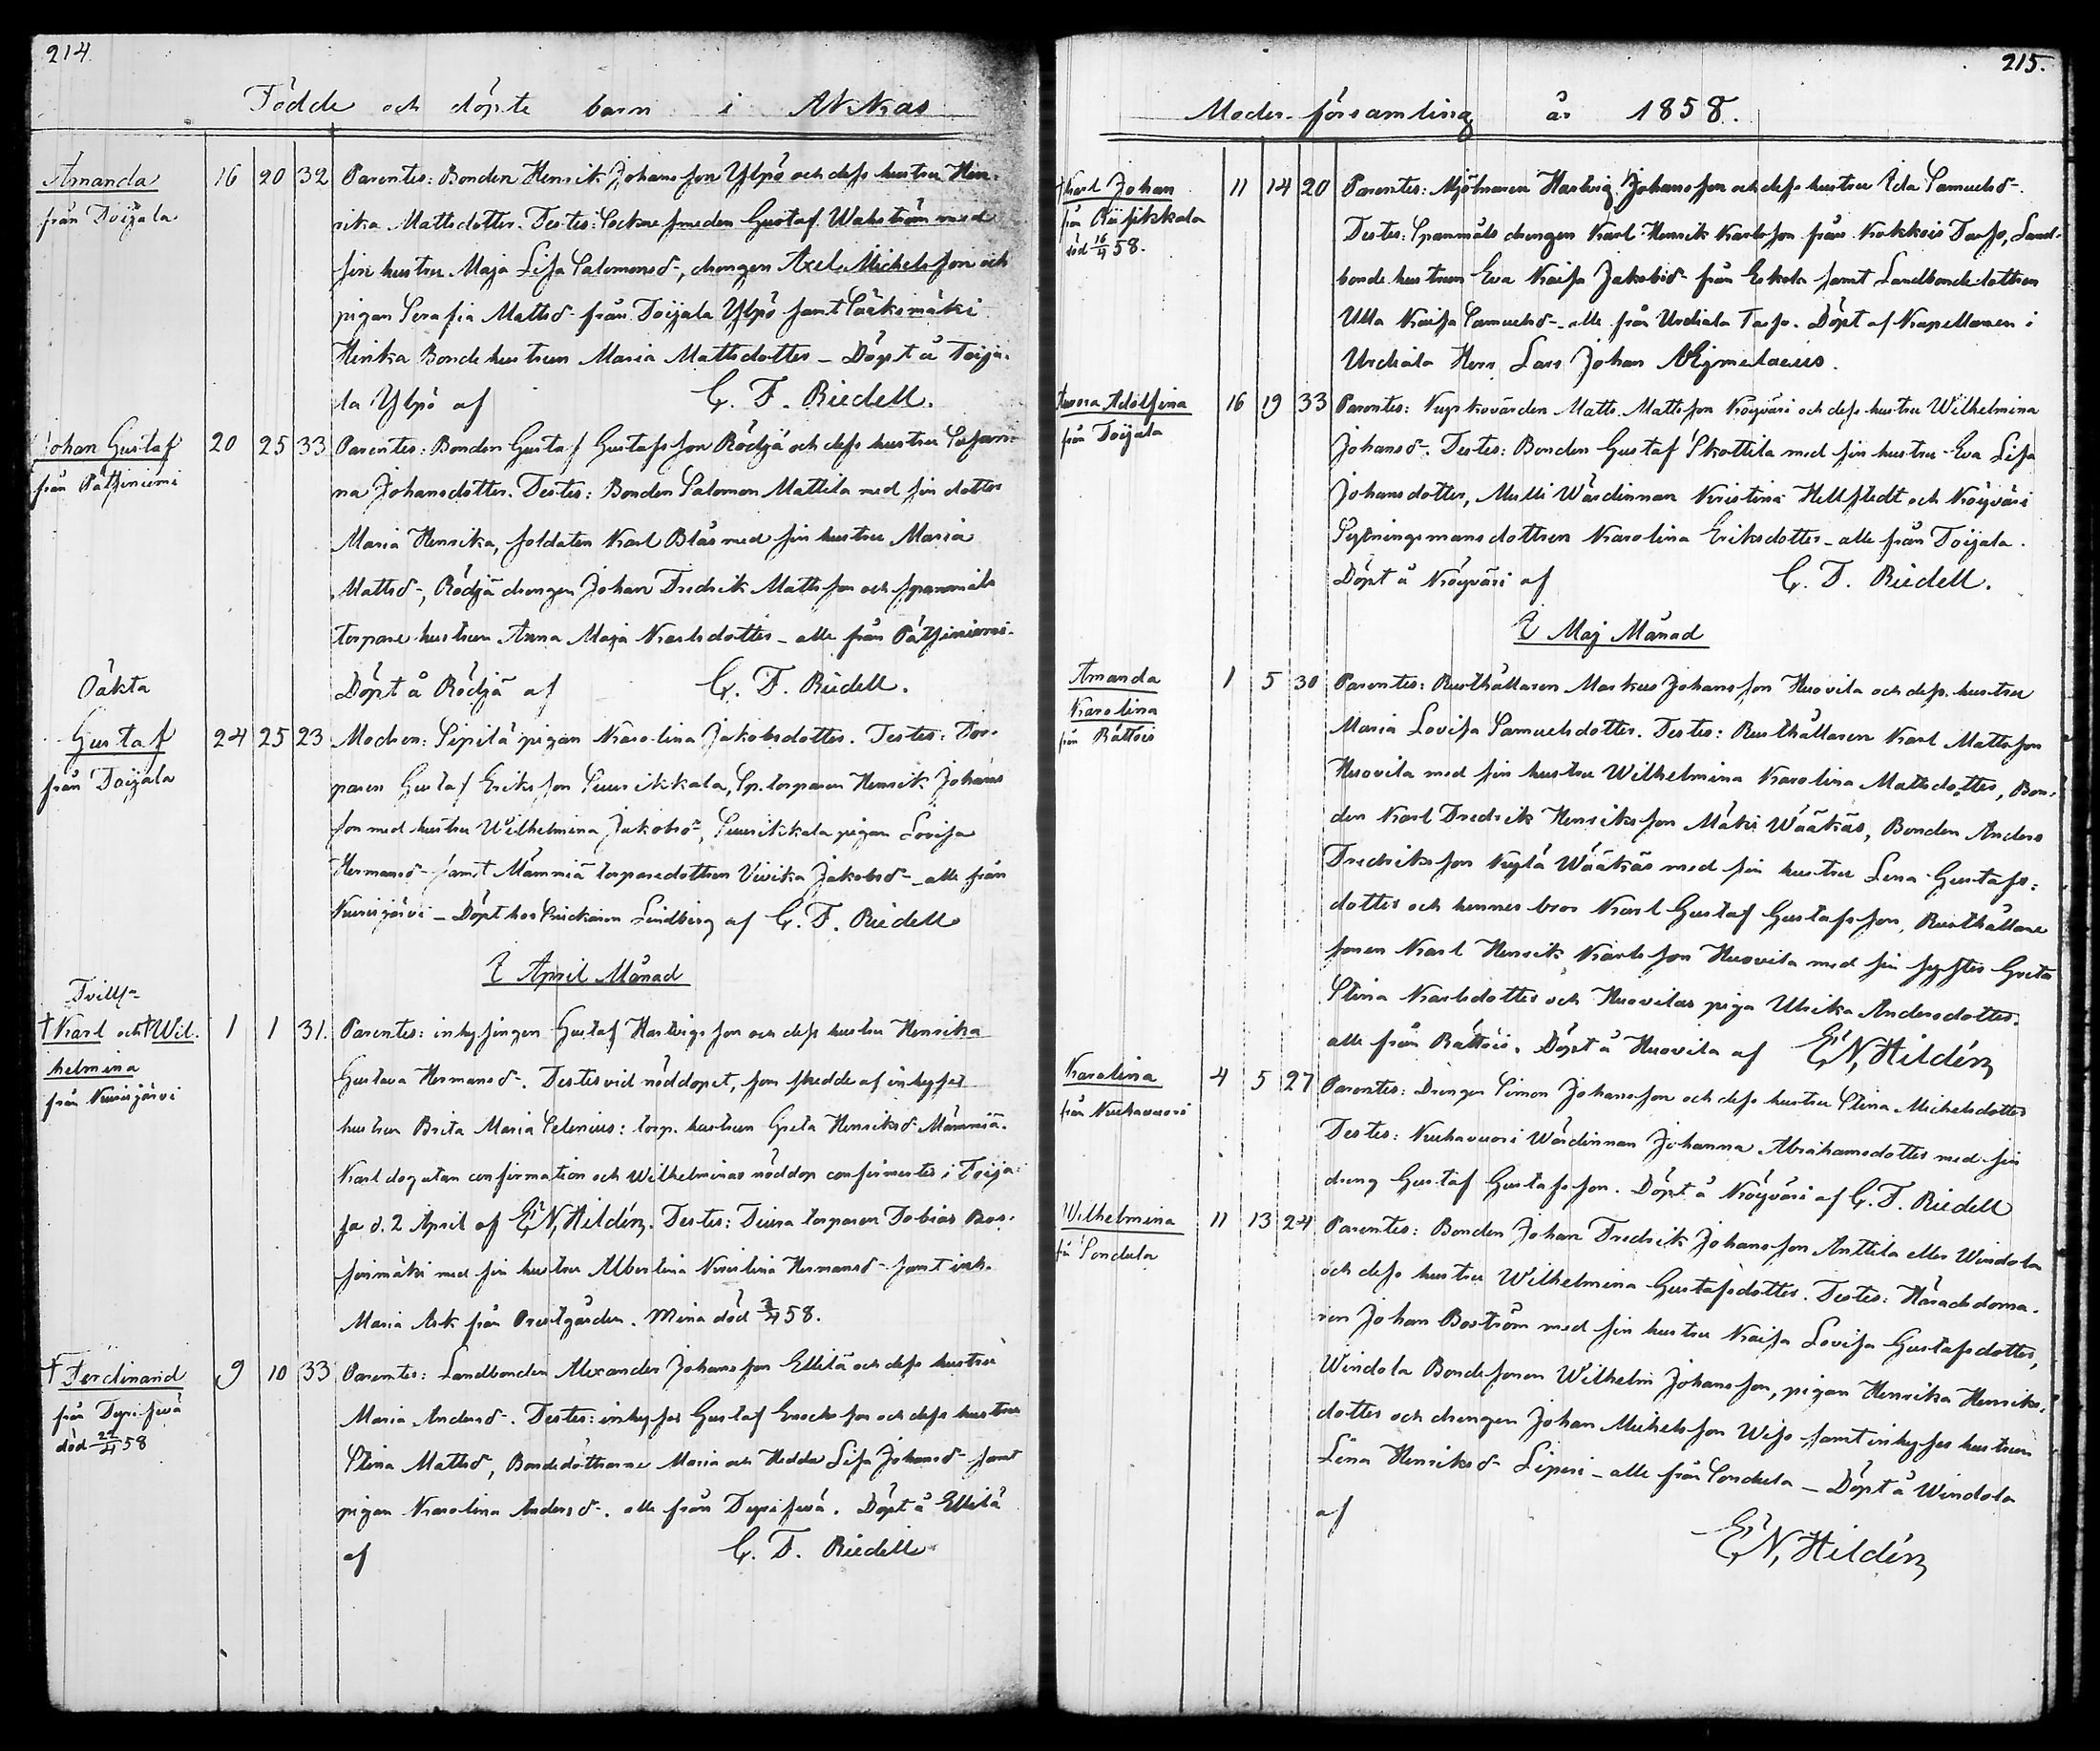 214.
Födde och döpte barn i Akkas
Amanda
från Toijala
16 20 32 Parentes: Bonden Henrik Johansson Ylpö och dess hustru Hen-
rika Mattsdotter. Testes: Sockne smeden Gustaf Wahström med
sin hustru Maja Lisa Salomonsd-, drengen Axel Michelsson och
pigan Serafia Mattsd- från Toijala Ylpö samt Sääksmäki
Henka Bonde hustrun Maria Mattsdotter - Döpt å Toija-
la Ylpö af G. F. Riedell.
Johan Gustaf
från Pätsiniemi
20 25 33 Parentes: Bonden Gustaf Gustafsson Rödjä och dess hustru Susan-
na Johansdotter. Testes: Bonden Salomon Mattila med sin dotter
Maria Henrika, soldaten Karl Blås med sin hustru Maria
Mattsd-, Rödjä drengen Johan Fredrik Mattsson och spanmåls
torpare hustrun Anna Maja Karlsdotter - alle från Pätsiniemi.
Döpt å Rödjä af G. F. Riedell.
Oäkta
Gustaf
från Toijala
24 25 23 Modren: Sipilä pigan Karolina Jakobsdotter. Testes: Tor-
paren Gustaf Eriksson Suurikkala, Sp. torparen Henrik Johans
son med hustru Wilhelmina Jakobsd-, Suurikkala pigan Lovisa
Hermansd- samt Mämmiä torparedottren Vivika Jakobsd- alle från
Kurisjärvi - Döpt hos Snickaren Lindberg af G. F. Riedell
I April Månad
Tvill-
†Karl och †Wil-
helmina
från Kurisjärvi
1 1 31. Parentes: inhysingen Gustaf Hartvigsson och dess hustru Henrika
Gustava Hermansd-. Testes vid nöddopet, som skedde af inhyses
hustrun Brita Maria Selenius: torp. hustrun Greta Henriksd Mämmiä.
Karl dog utan confirmation och Wilhelminas nöddop confirmertes i Toija-
la d. 2 April af E. N. Hildén. Testes: Tiura torparen Tobias
med sin hustru Albertina Kristina Hermansd- samt inh.
Maria Ark från Prestgården. Mina död 3/4 58.
† Ferdinand
från Terisevä
död 24/4 58
9 10 33 Parentes: Landbonden Alexander Johansson Ellilä och dess hustru
Maria Andersd-. Testes: inhyses Gustaf Enochsson och dess hustru
Stina Mattsd, Bondedöttrarne Maria och Hedda Lisa Johansd- samt
pigan Karolina Andersd-. alle från Terisevä. Döpt å Ellilä
af G. F. Riedell
215.
Moder-församling år 1858.
†Karl Johan
från Riisikkala
död 16/4 58.
11 14 20 Parentes: Mjölnaren Hartvig Johansson och dess hustru Ida Samuelsd-.
Testes: Spanmåls drengen Karl Henrik Karlsson från Kokkois Tarso, Land-
bonde hustrun Eva Kaisa Jakobsd- från Eskola samt Landbondedottren
Ulla Kaisa Samuelsd- alle från Urdiala Tarso. Döpt af Kapellanen i
Urdiala Herr Lars Johan Argmelaeus.
Aurora Adolfina
från Toijala
16 19 33 Parentes: Kupkovärden Matts Mattsson Köyväri och dess hustru Wilhelmina
Johansd-. Testes: Bonden Gustaf Skottila med sin hustru Eva Lisa
Johansdotter, Mulli Wärdinnan Kristina Hellstedt och Köyväri
Sytningsmans dottren Karolina Eriksdotter - alle från Toijala.
Döpt å Köyväri af G. F. Riedell.
I Maj Månad
Amanda
Karolina
från Rättois
1 5 30 Parentes: Rusthållaren Markus Johansson Huovila och dess hustru
Maria Lovisa Samuelsdotter. Testes: Rusthållaren Karl Mattsson
Huovila med sin hustru Wilhelmina Karolina Mattsdotter, Bon-
den Karl Fredrik Henriksson Mäki Wääkäs, Bonden Anders
Fredriksson Kylä Wääkäs med sin hustru Lena Gustafs-
dotter och hennes bror Karl Gustaf Gustafsson, Rusthållare
sonen Karl Henrik Karlsson Huovila med sin syster Greta
Stina Karlsdotter och Huovilas piga Ulrika Andersdotter.
alle från Rättois. Döpt å Huovila af E. N. Hildén
Karolina
från Kurhavuori
4 5 27 Parentes: Drengen Simon Johansson och dess hustru Stina Michelsdotter
Testes: Kurhavuori Wärdinnan Johanna Abrahamsdotter med sin
dreng Gustaf Gustafsson. Döpt å Köyväri af G. F. Riedell
Wilhelmina
från Sondula
11 13 24 Parentes: Bonden Johan Fredrik Johansson Anttila eller Windola
och dess hustru Wilhelmina Gustafsdotter. Testes: Häradsdoma-
ren Johan Boström med sin hustru Kaisa Lovisa Gustafsdotter,
Windola Bondesonen Wilhelm Johansson, pigan Henrika Henriks-
dotter och drengen Johan Michelsson Wiso samt inhyses hustrun
Lena Henriksd- Liperi - alle från Sondula - Döpt å Windola
af
E. N. Hildén